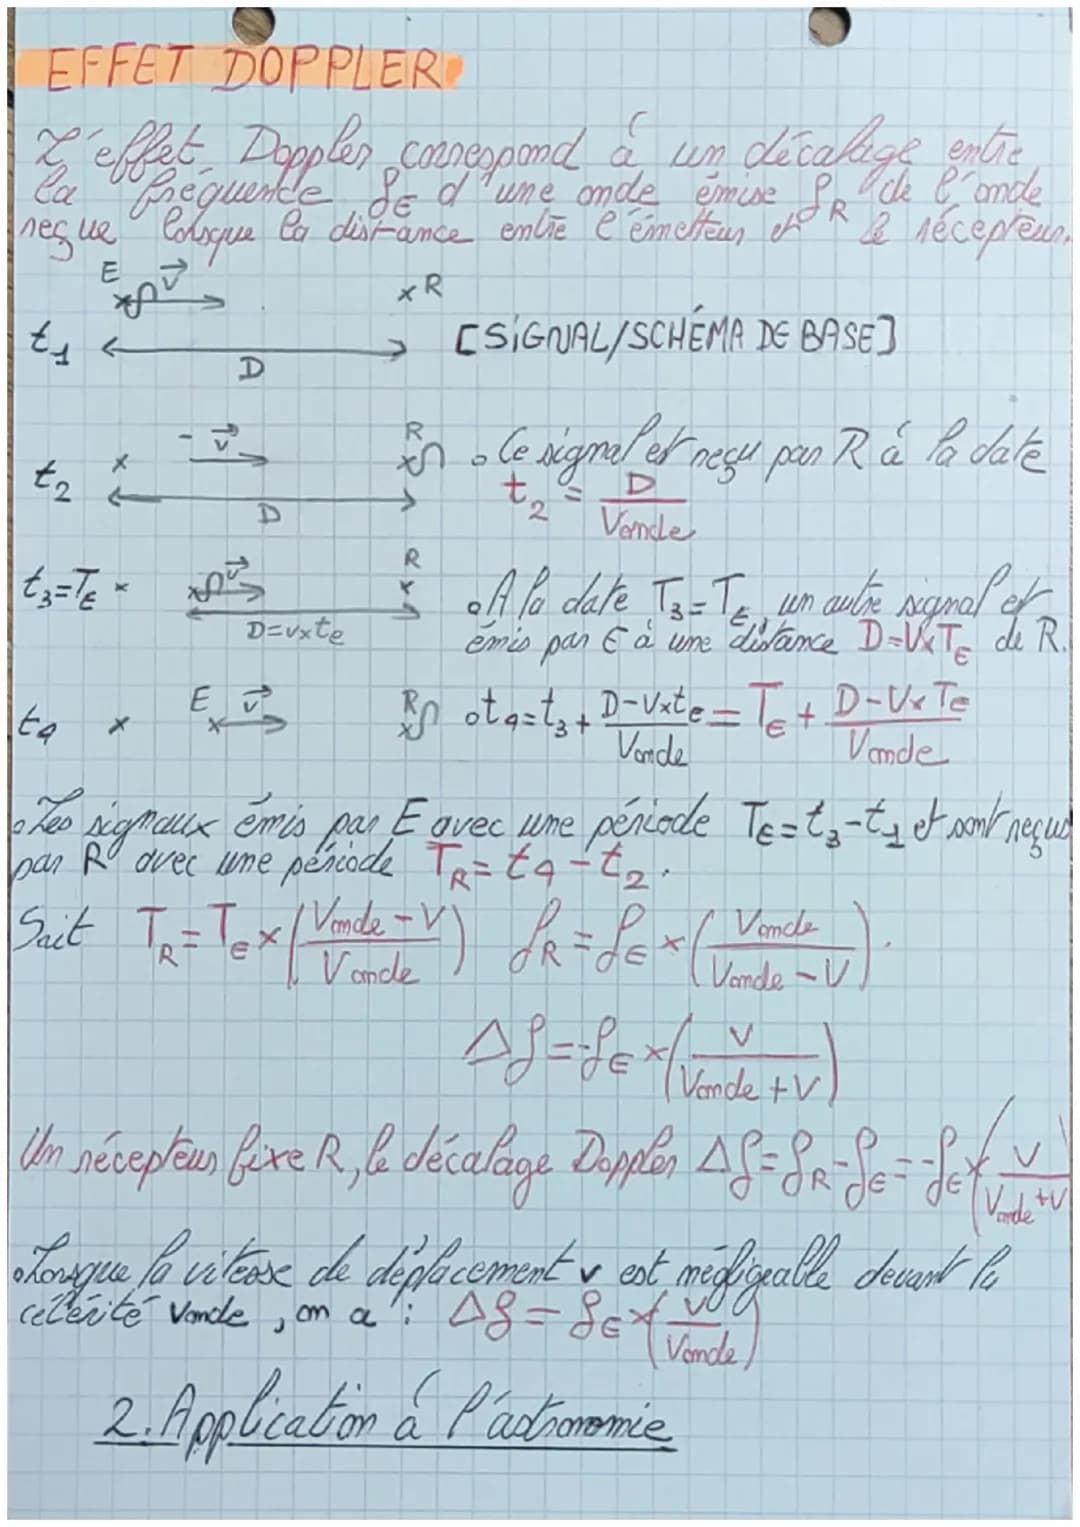 EFFET DOPPLER
L'effet Doppler correspond à un décalage entre
la fréquence fE d'une onde émise fR de l'onde
reçue lorsque la distance entre l'émetteur et le récepteur.
E v⃗ R
t1 D [SIGNAL/SCHÉMA DE BASE]
- v⃗ R
t2 D
• Ce signal et reçu par R à la date
t2 = D/Vonde
t3=TE v⃗ R
D=v×te
• A la date T3=TE, un autre signal et
émis par E à une distance D=V×TE de R.
t4 E v⃗ R • t4=t3+ (D-V×te)/Vonde = TE + (D-V×Te)/Vonde
• Les signaux émis par E avec une période TE=t3-t1 et sont reçus
par R avec une période TR=t4-t2.
Sait TR=TE×((Vonde-V)/Vonde) fR=fE×(Vonde/(Vonde-V)).
Δf=-fE×(V/(Vonde+V))
Un récepteur fixe R, le décalage Doppler Δf=fR-fE=-fE×(V/(Vonde+V)
• Lorsque la vitesse de déplacement v est négligeable devant la
célérité Vonde, on a : Δf=fE×(V/Vonde)
2. Application à l'astronomie